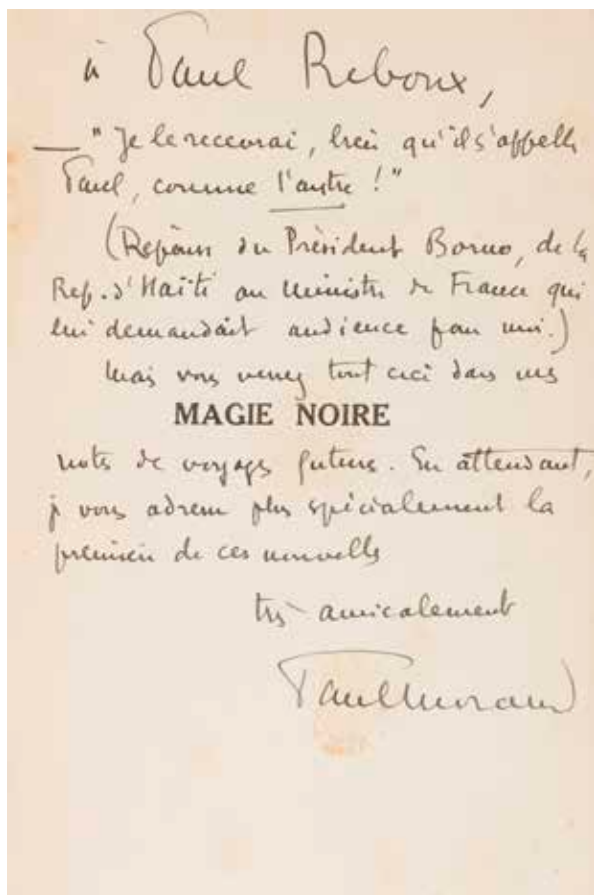 à Paul Reboux,
— "Je le recevrai, bien qu'il s'appelle
Paul, comme l'autre !"
(Réponse du Président Borno, de la
Rép. d'Haïti au Ministre de France qui
lui demandait audience pour moi.)
Mais vous verrez tout ceci dans mes
MAGIE NOIRE
notes de voyages futures. En attendant,
je vous adresse plus spécialement la
première de ces nouvelles
très amicalement
Paul Morand